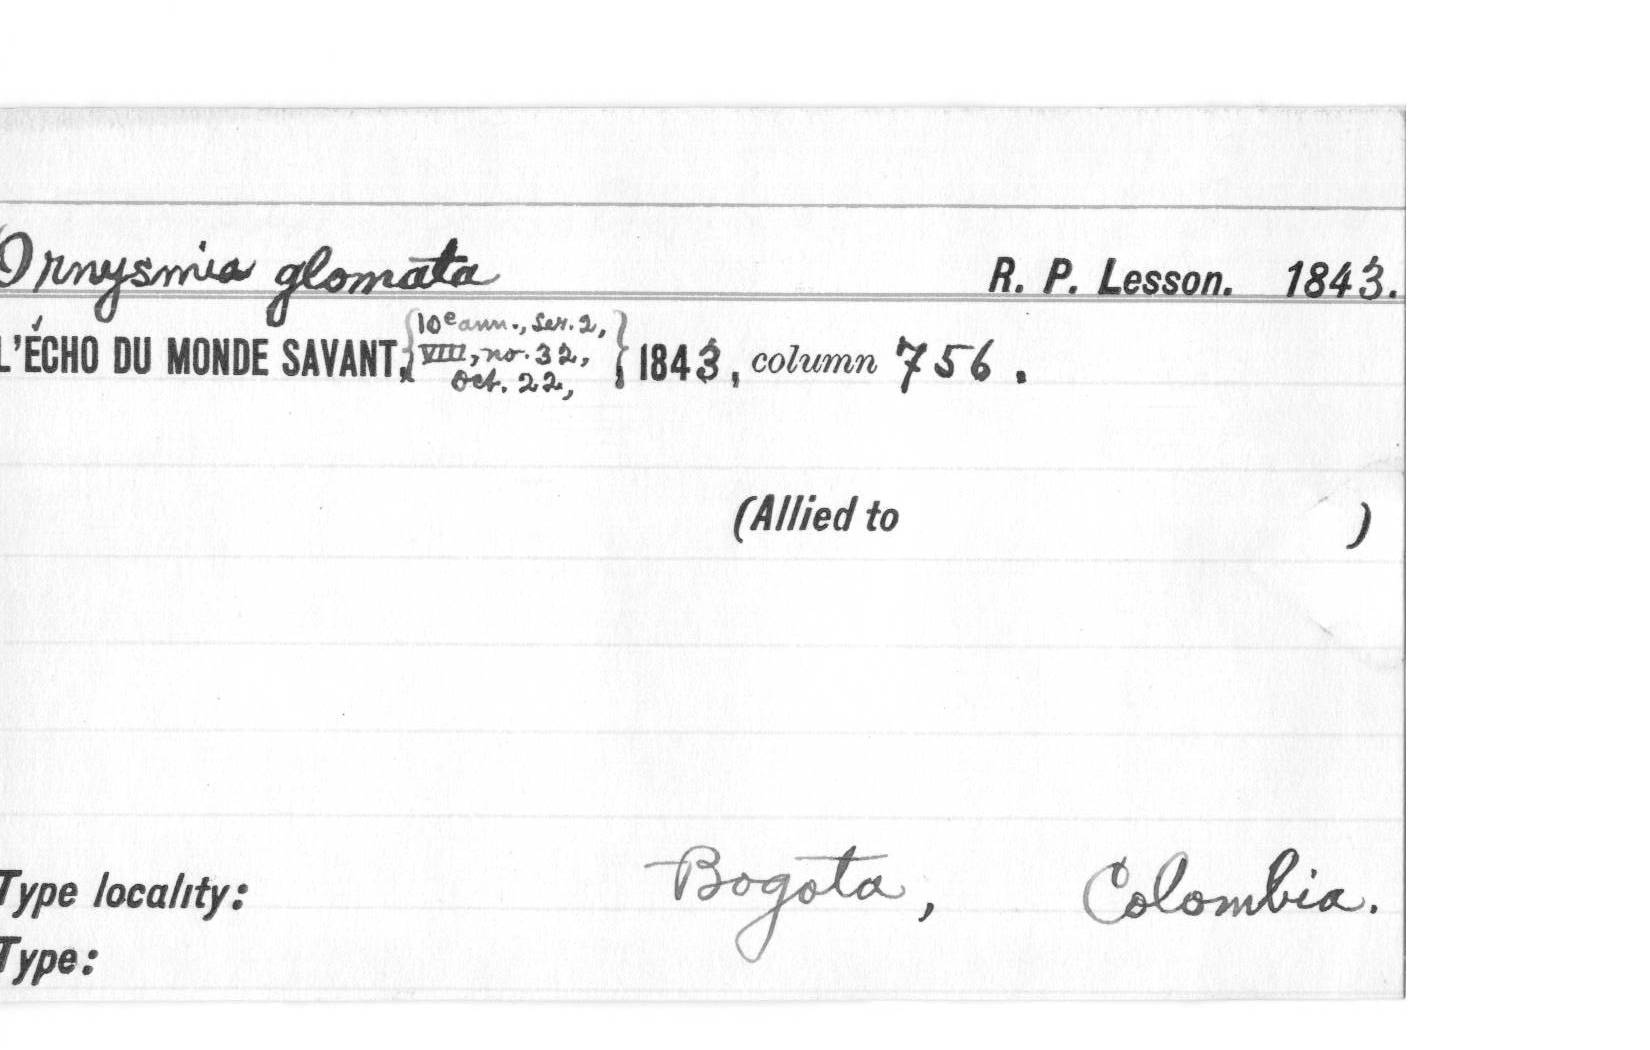 Ornysmia glomata R. P. Lesson. 1843.
L'ÉCHO DU MONDE SAVANT, {10e ann., Ser. 2, VIII, no. 32, Oct. 22,} 1843, column 756.
(Allied to )
Type locality: Bogota, Colombia.
Type: